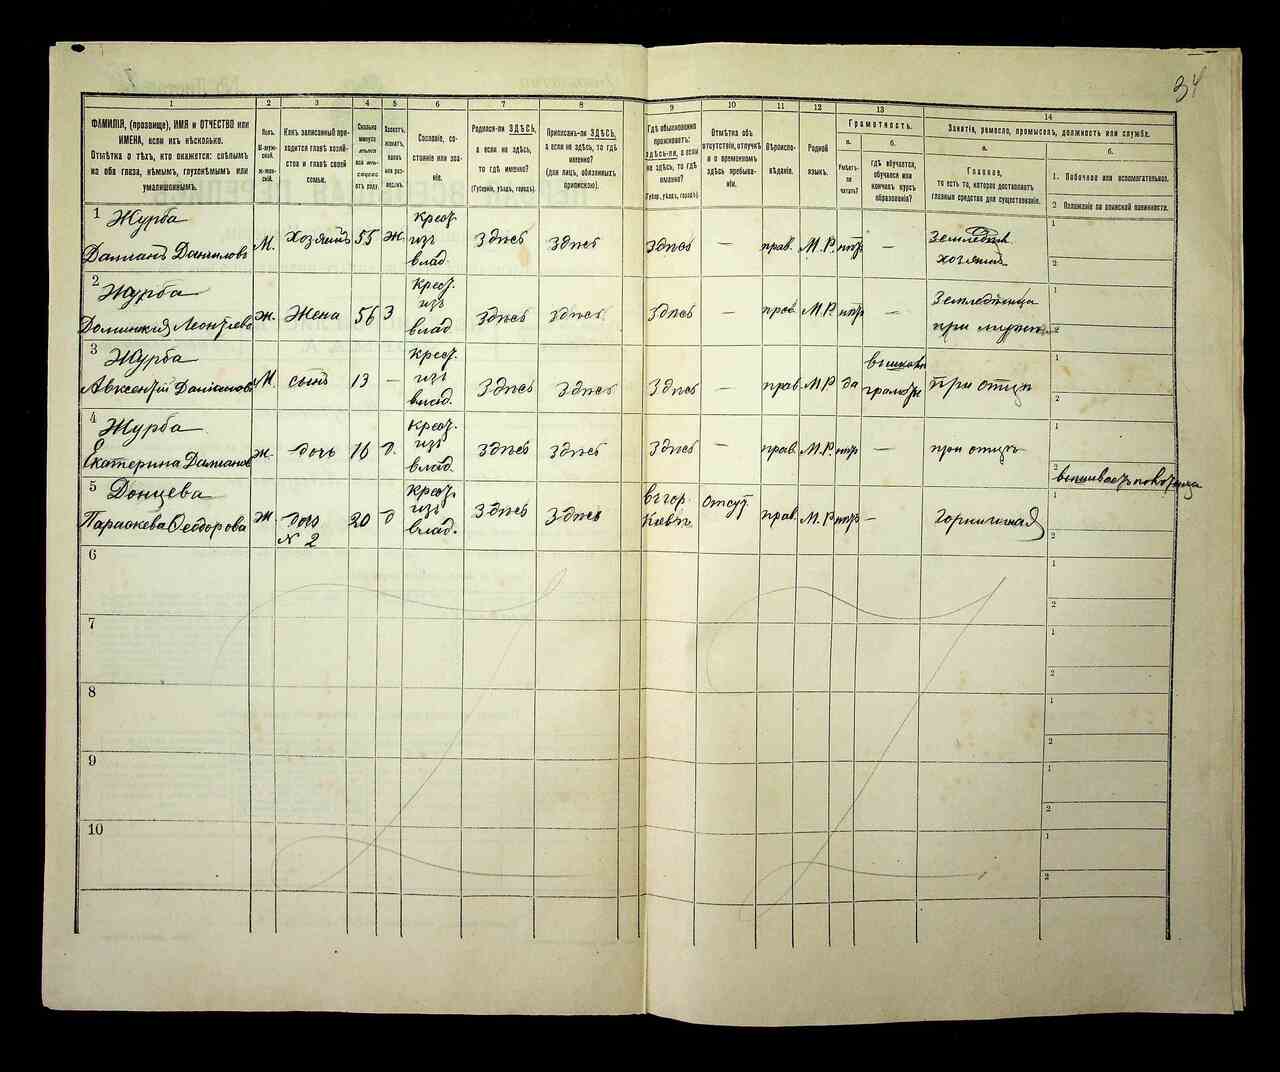 34
1 2 3 4 5 6 7 8 9 10 11 12 13 14
ФАМИЛІЯ, (прозвище), ИМЯ и ОТЧЕСТВО или
ИМЕНА, если ихъ нѣсколько.
Отмѣтка о тѣхъ, кто окажется: слѣпымъ
на оба глаза, нѣмымъ, глухонѣмымъ или
умалишеннымъ.
Полъ.
М-мужской.
Ж-женскій.
Какъ записанный приходится
главѣ хозяйства
и главѣ своей
семьи.
Сколько
минуло
лѣтъ
Холостъ,
женатъ,
вдовъ
или разведенъ.
Сословіе, состояніе
или званіе.
Родился-ли ЗДѢСЬ,
а если не здѣсь,
то гдѣ именно?
(Губернія, уѣздъ, городъ).
Приписанъ-ли ЗДѢСЬ,
а если не здѣсь, то гдѣ
именно?
(для лицъ, обязанныхъ
припискою).
Гдѣ обыкновенно
проживаетъ:
ЗДѢСЬ-ли, а если
не здѣсь, то гдѣ
именно?
(Губер., уѣздъ, городъ).
Отмѣтка объ
отсутствіи, отлучкѣ
и о временномъ
здѣсь пребываніи.
Вѣроисповѣданіе.
Родной
языкъ.
Грамотность.
а.
Умѣетъ-ли
читать?
б.
гдѣ обучается,
обучался или
кончилъ курсъ
образованія?
Занятіе, ремесло, промыселъ, должность или служба.
а.
Главное,
то есть то, которое доставляетъ
главныя средства для существованія.
б.
1. Побочное или вспомогательное.
2 Положеніе по воинской повинности.
1 Журба
Даміанъ Даниловъ М. хозяинъ 55 ж. Крест. из влад. Здѣсь Здѣсь Здѣсь — прав. М.Р. нѣтъ — Земледѣл. хозяинъ 1 2
2 Журба
Домникія Леонтьева ж. Жена 56 З Крест. из влад. Здѣсь Здѣсь Здѣсь — прав. М.Р. нѣтъ Земледѣлица при 1 2
3 Журба
Авксентій Даміановъ М. сынъ 13 — Крест. из влад. Здѣсь Здѣсь Здѣсь — прав. М.Р. да въ школѣ грамоты при отцѣ 1 2
4 Журба
Екатерина Даміанов ж. дочь 16 д. Крест. из влад. Здѣсь Здѣсь Здѣсь — прав. М.Р. нѣтъ при отцѣ 2
5 Донцева
Параскева Феодорова ж дочь № 2 20 д Крест. из влад. Здѣсь Здѣсь въ гор. Кіевѣ Отсут. прав. М.Р. нѣтъ — горничная 1 2
6 1 2
7 1 2
8 1 2
9 1 2
10 1 2